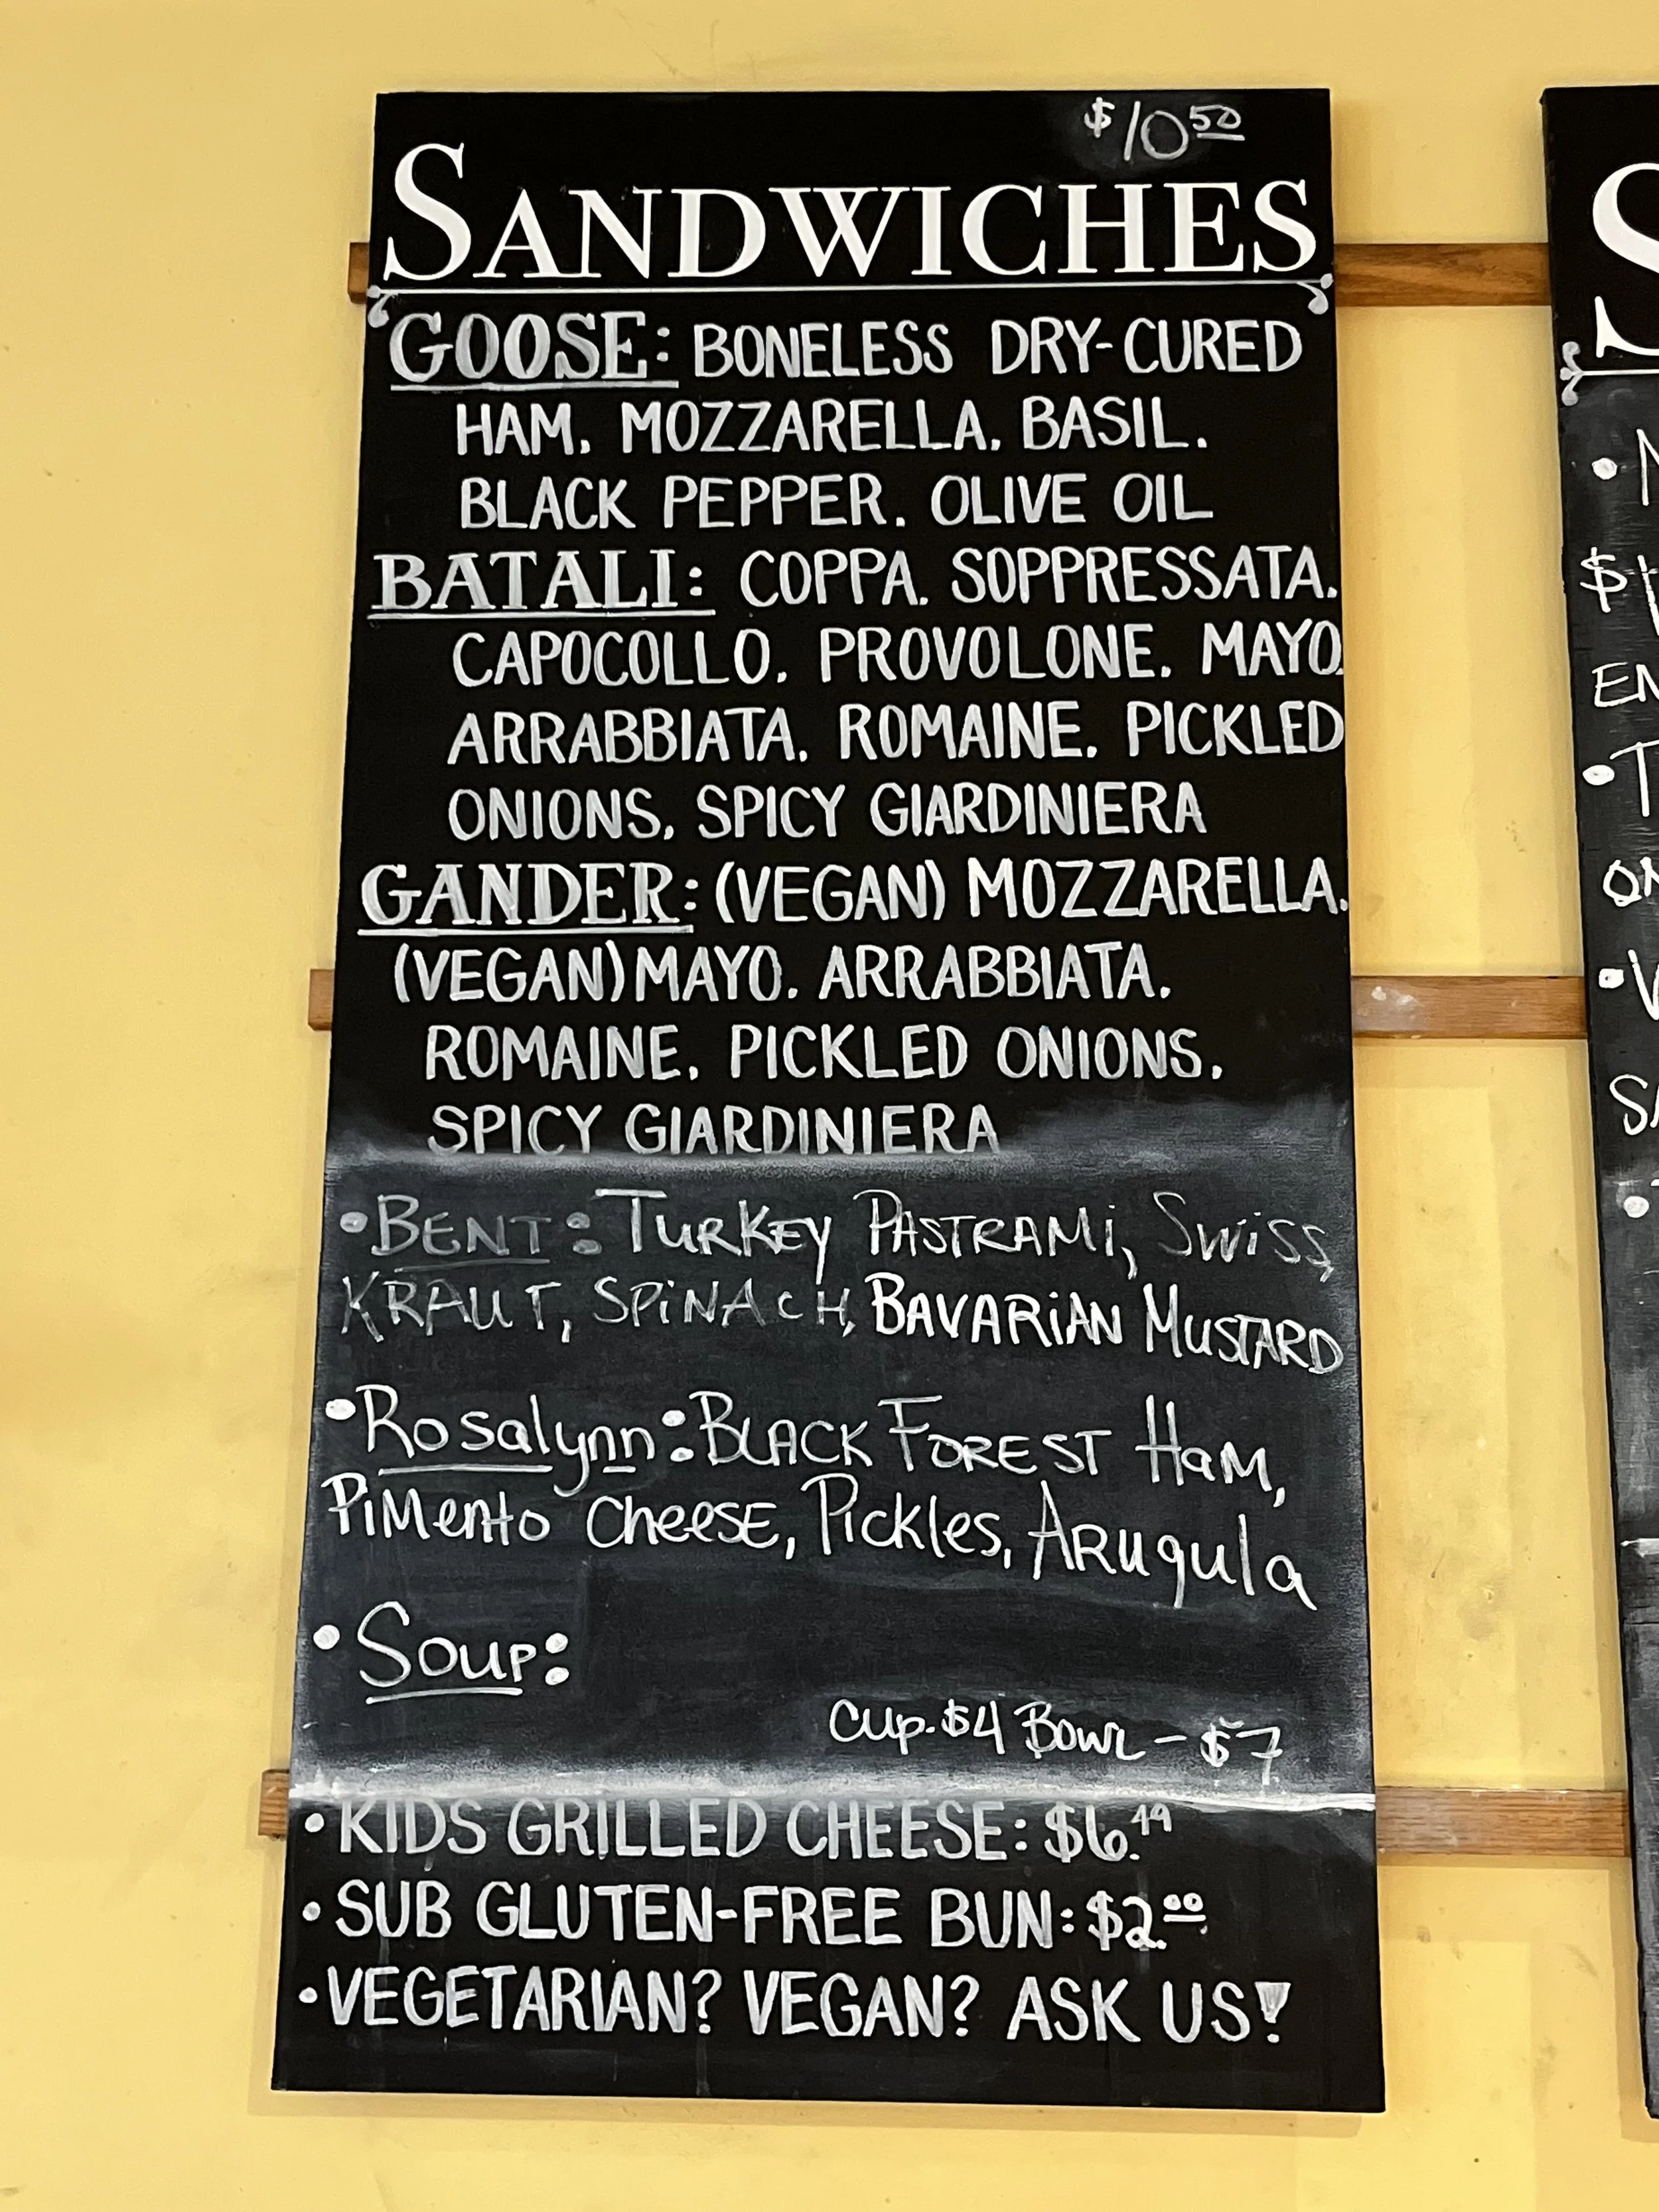 $10 50
SANDWICHES
GOOSE: BONELESS DRY-CURED
HAM, MOZZARELLA, BASIL,
BLACK PEPPER, OLIVE OIL
BATALI: COPPA, SOPPRESSATA,
CAPOCOLLO, PROVOLONE, MAYO,
ARRABBIATA, ROMAINE, PICKLED
ONIONS, SPICY GIARDINIERA
GANDER: (VEGAN) MOZZARELLA,
(VEGAN) MAYO, ARRABBIATA,
ROMAINE, PICKLED ONIONS,
SPICY GIARDINIERA
•BENT: TURKEY PASTRAMi, SWiSS,
KRAUT, SPiNACH, BAVARiAN MUSTARD
•Rosalynn: BLACK FOREST HaM,
PiMento CheeSE, Pickles, ARugula
•Soup:
Cup-$4 Bowl - $7
•KIDS GRILLED CHEESE: $6.49
•SUB GLUTEN-FREE BUN: $2.00
•VEGETARIAN? VEGAN? ASK US!